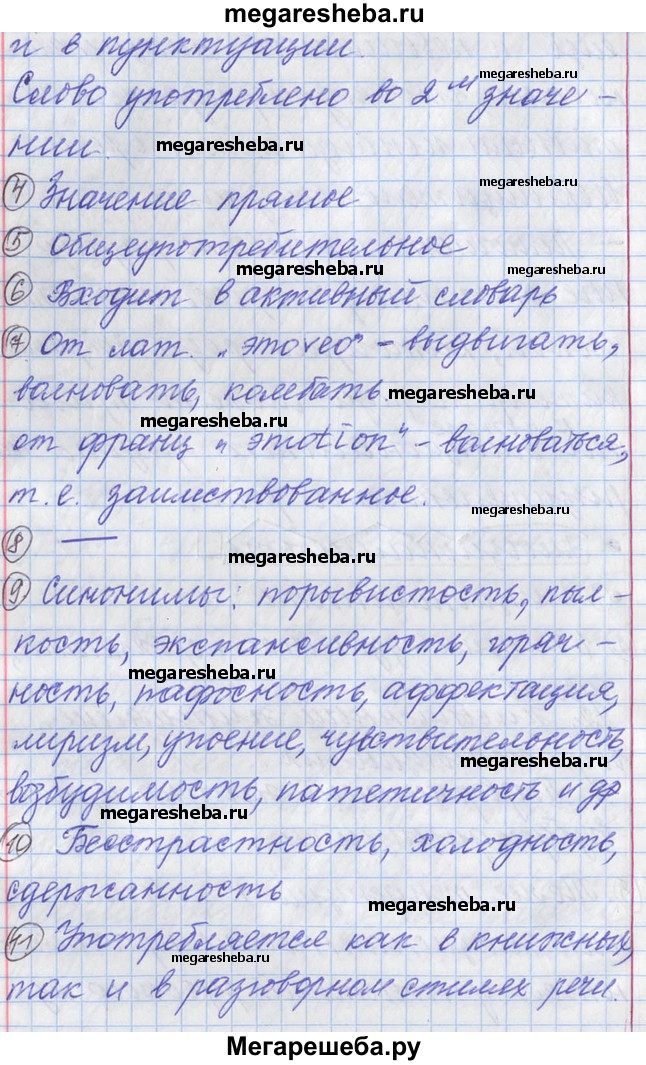 megaresheba.ru
и в пунктуации.
megaresheba.ru
Слово употреблено во 2м значе-
нии.
megaresheba.ru
megaresheba.ru
4 Значение прямое
5 Общеупотребительное
megaresheba.ru
megaresheba.ru
6 Входит в активный словарь
7 От лат. „эmoveo" - выдвигать,
волновать, колебать.
megaresheba.ru
megaresheba.ru
от франц „эmotion" - волноваться,
т.е. заимствованное.
megaresheba.ru
8 —
megaresheba.ru
9 Синонимы: порывистость, пыл-
кость, экспансивность, горяч-
megaresheba.ru
ность, пафосность, аффектация,
лиризм, упоение, чувствительность,
megaresheba.ru
возбудимость, патетичность и др
megaresheba.ru
10 Бесстрастность, холодность,
сдержанность
megaresheba.ru
11 Употребляется как в книжных,
megaresheba.ru
так и в разговорном стилях речи.
Мегарешеба.ру